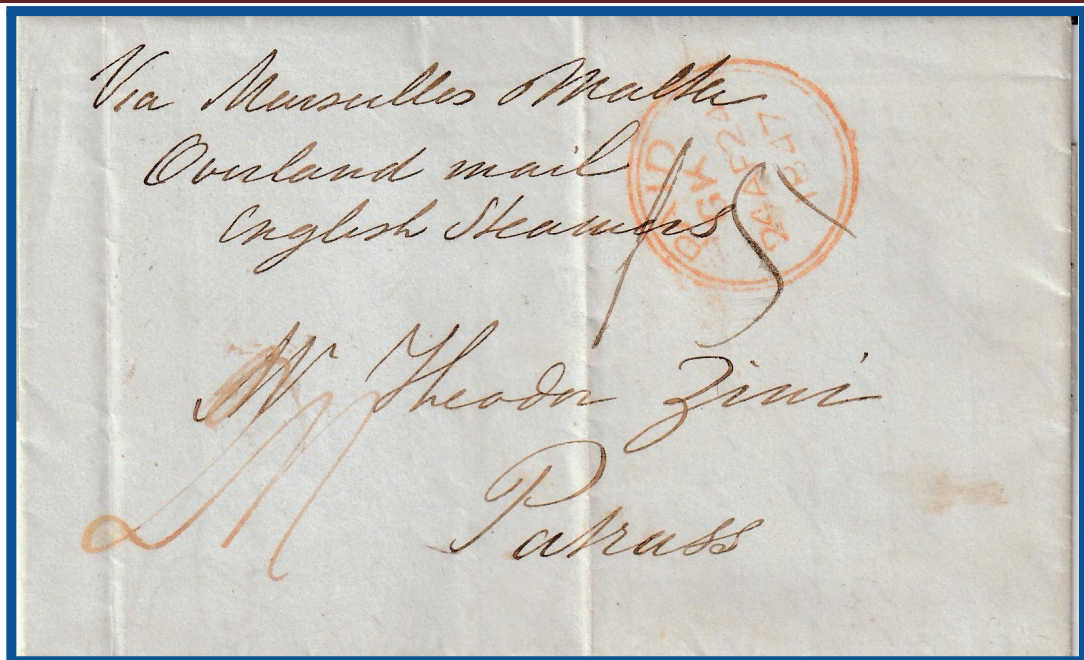 Via Marseilles Malta
Overland mail
English Steamers
PAID
24 AP 24
1847
Mr Theodor Zini
Patrass